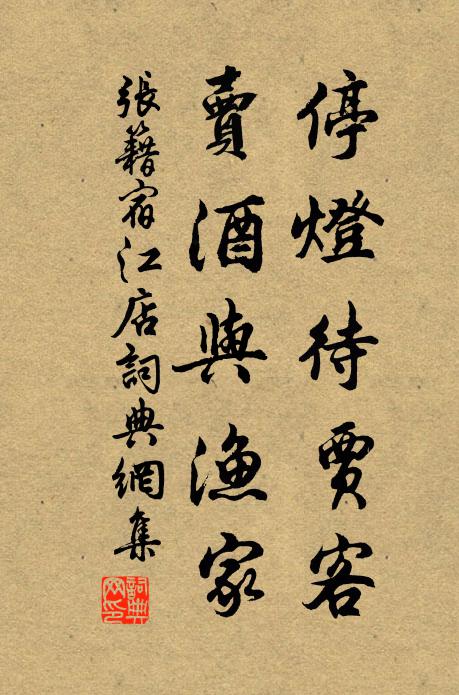 停燈待賈客
賣酒與漁家
張籍宿江店詞典網集
詞典網印